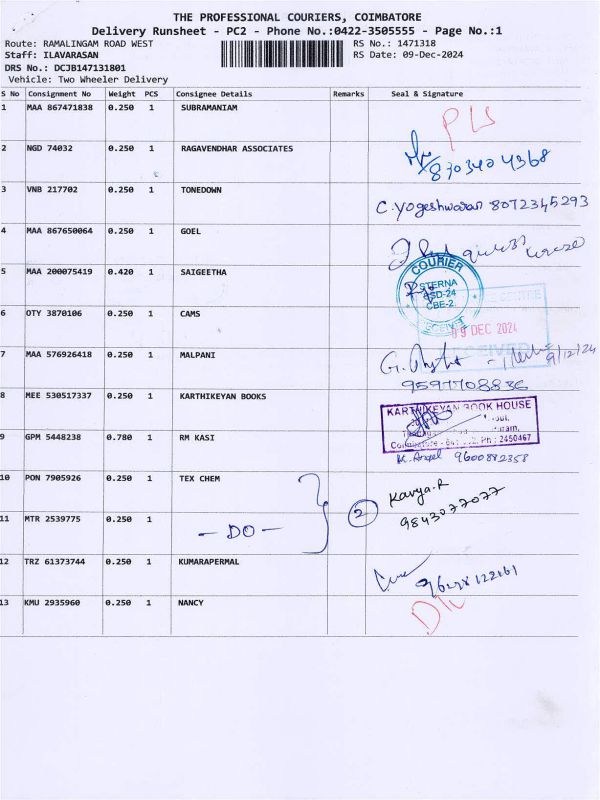 THE PROFESSIONAL COURIERS, COIMBATORE
Delivery Runsheet - PC2 - Phone No.:0422-3505555 - Page No.:1
Route: RAMALINGAM ROAD WEST
RS No.: 1471318
Staff: ILAVARASAN
RS Date: 09-Dec-2024
DRS No.: DCJB147131801
Vehicle: Two Wheeler Delivery
S No Consignment No Weight PCS Consignee Details Remarks Seal & Signature
1 MAA 867471838 0.250 1 SUBRAMANIAM
2 NGD 74032 0.250 1 RAGAVENDHAR ASSOCIATES 8703404368
3 VNB 217702 0.250 1 TONEDOWN C. Yogeshwaran 8072345293
4 MAA 867650064 0.250 1 GOEL
5 MAA 200075419 0.420 1 SAIGEETHA
COURIER
CBE-2
6 OTY 3870106 0.250 1 CAMS
09 DEC 2024
RECEIVED
7 MAA 576926418 0.250 1 MALPANI 9/12/24
9597708836
8 MEE 530517337 0.250 1 KARTHIKEYAN BOOKS
KARTHIKEYAN BOOK HOUSE
9 GPM 5448238 0.780 1 RM KASI
Ph : 2450467
9600882358
10 PON 7905926 0.250 1 TEX CHEM
Kavya.R
2
9843077077
11 MTR 2539775 0.250 1 - DO -
12 TRZ 61373744 0.250 1 KUMARAPERMAL
13 KMU 2935960 0.250 1 NANCY